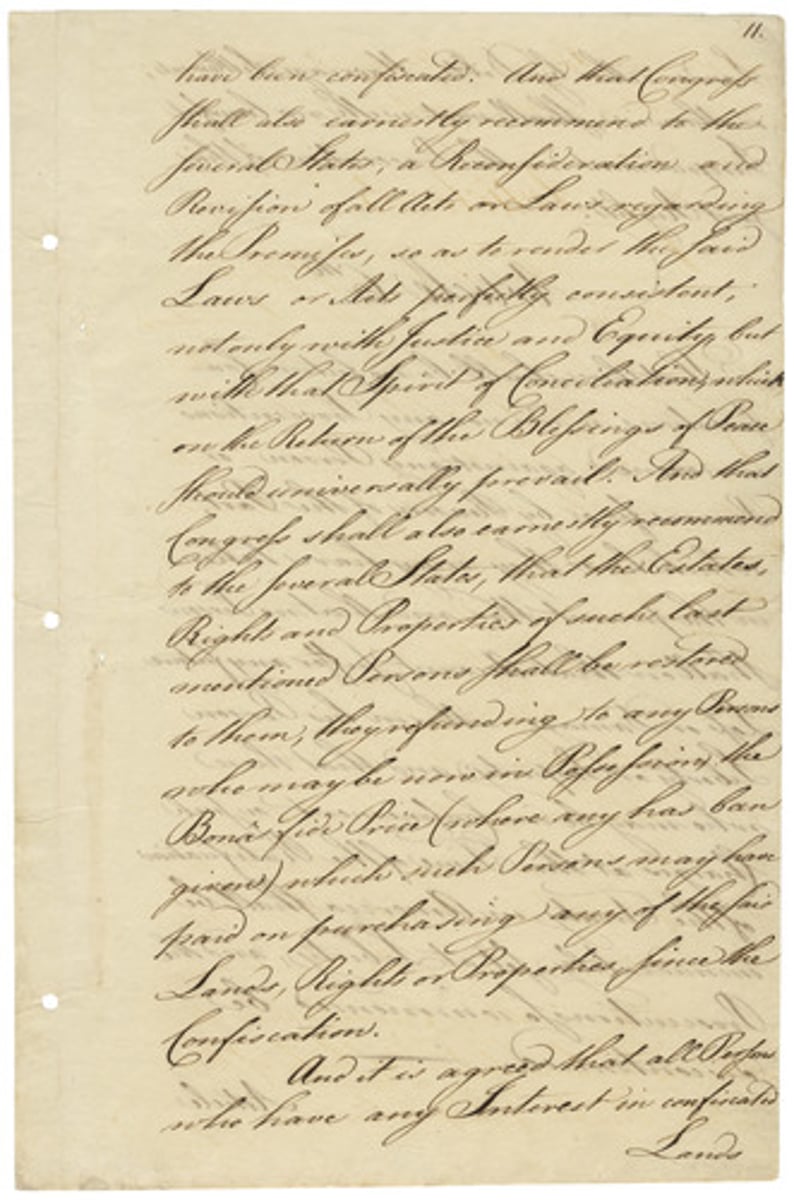 11.
have been confiscated. And that Congress
shall also earnestly recommend to the
several States, a Reconsideration and
Revision of all Acts or Laws regarding
the Premises, so as to render the said
Laws or Acts perfectly consistent,
not only with Justice and Equity, but
with that Spirit of Conciliation, which
on the Return of the Blessings of Peace
should universally prevail. And that
Congress shall also earnestly recommend
to the several States, that the Estates,
Rights and Properties of such last
mentioned Persons shall be restored
to them, they refunding to any Persons
who may be now in Possession, the
Bonâ fide Price (where any has been
given,) which such Persons may have
paid on purchasing any of the said
Lands, Rights or Properties, since the
Confiscation.
And it is agreed that all Persons
who have any Interest in confiscated
Lands